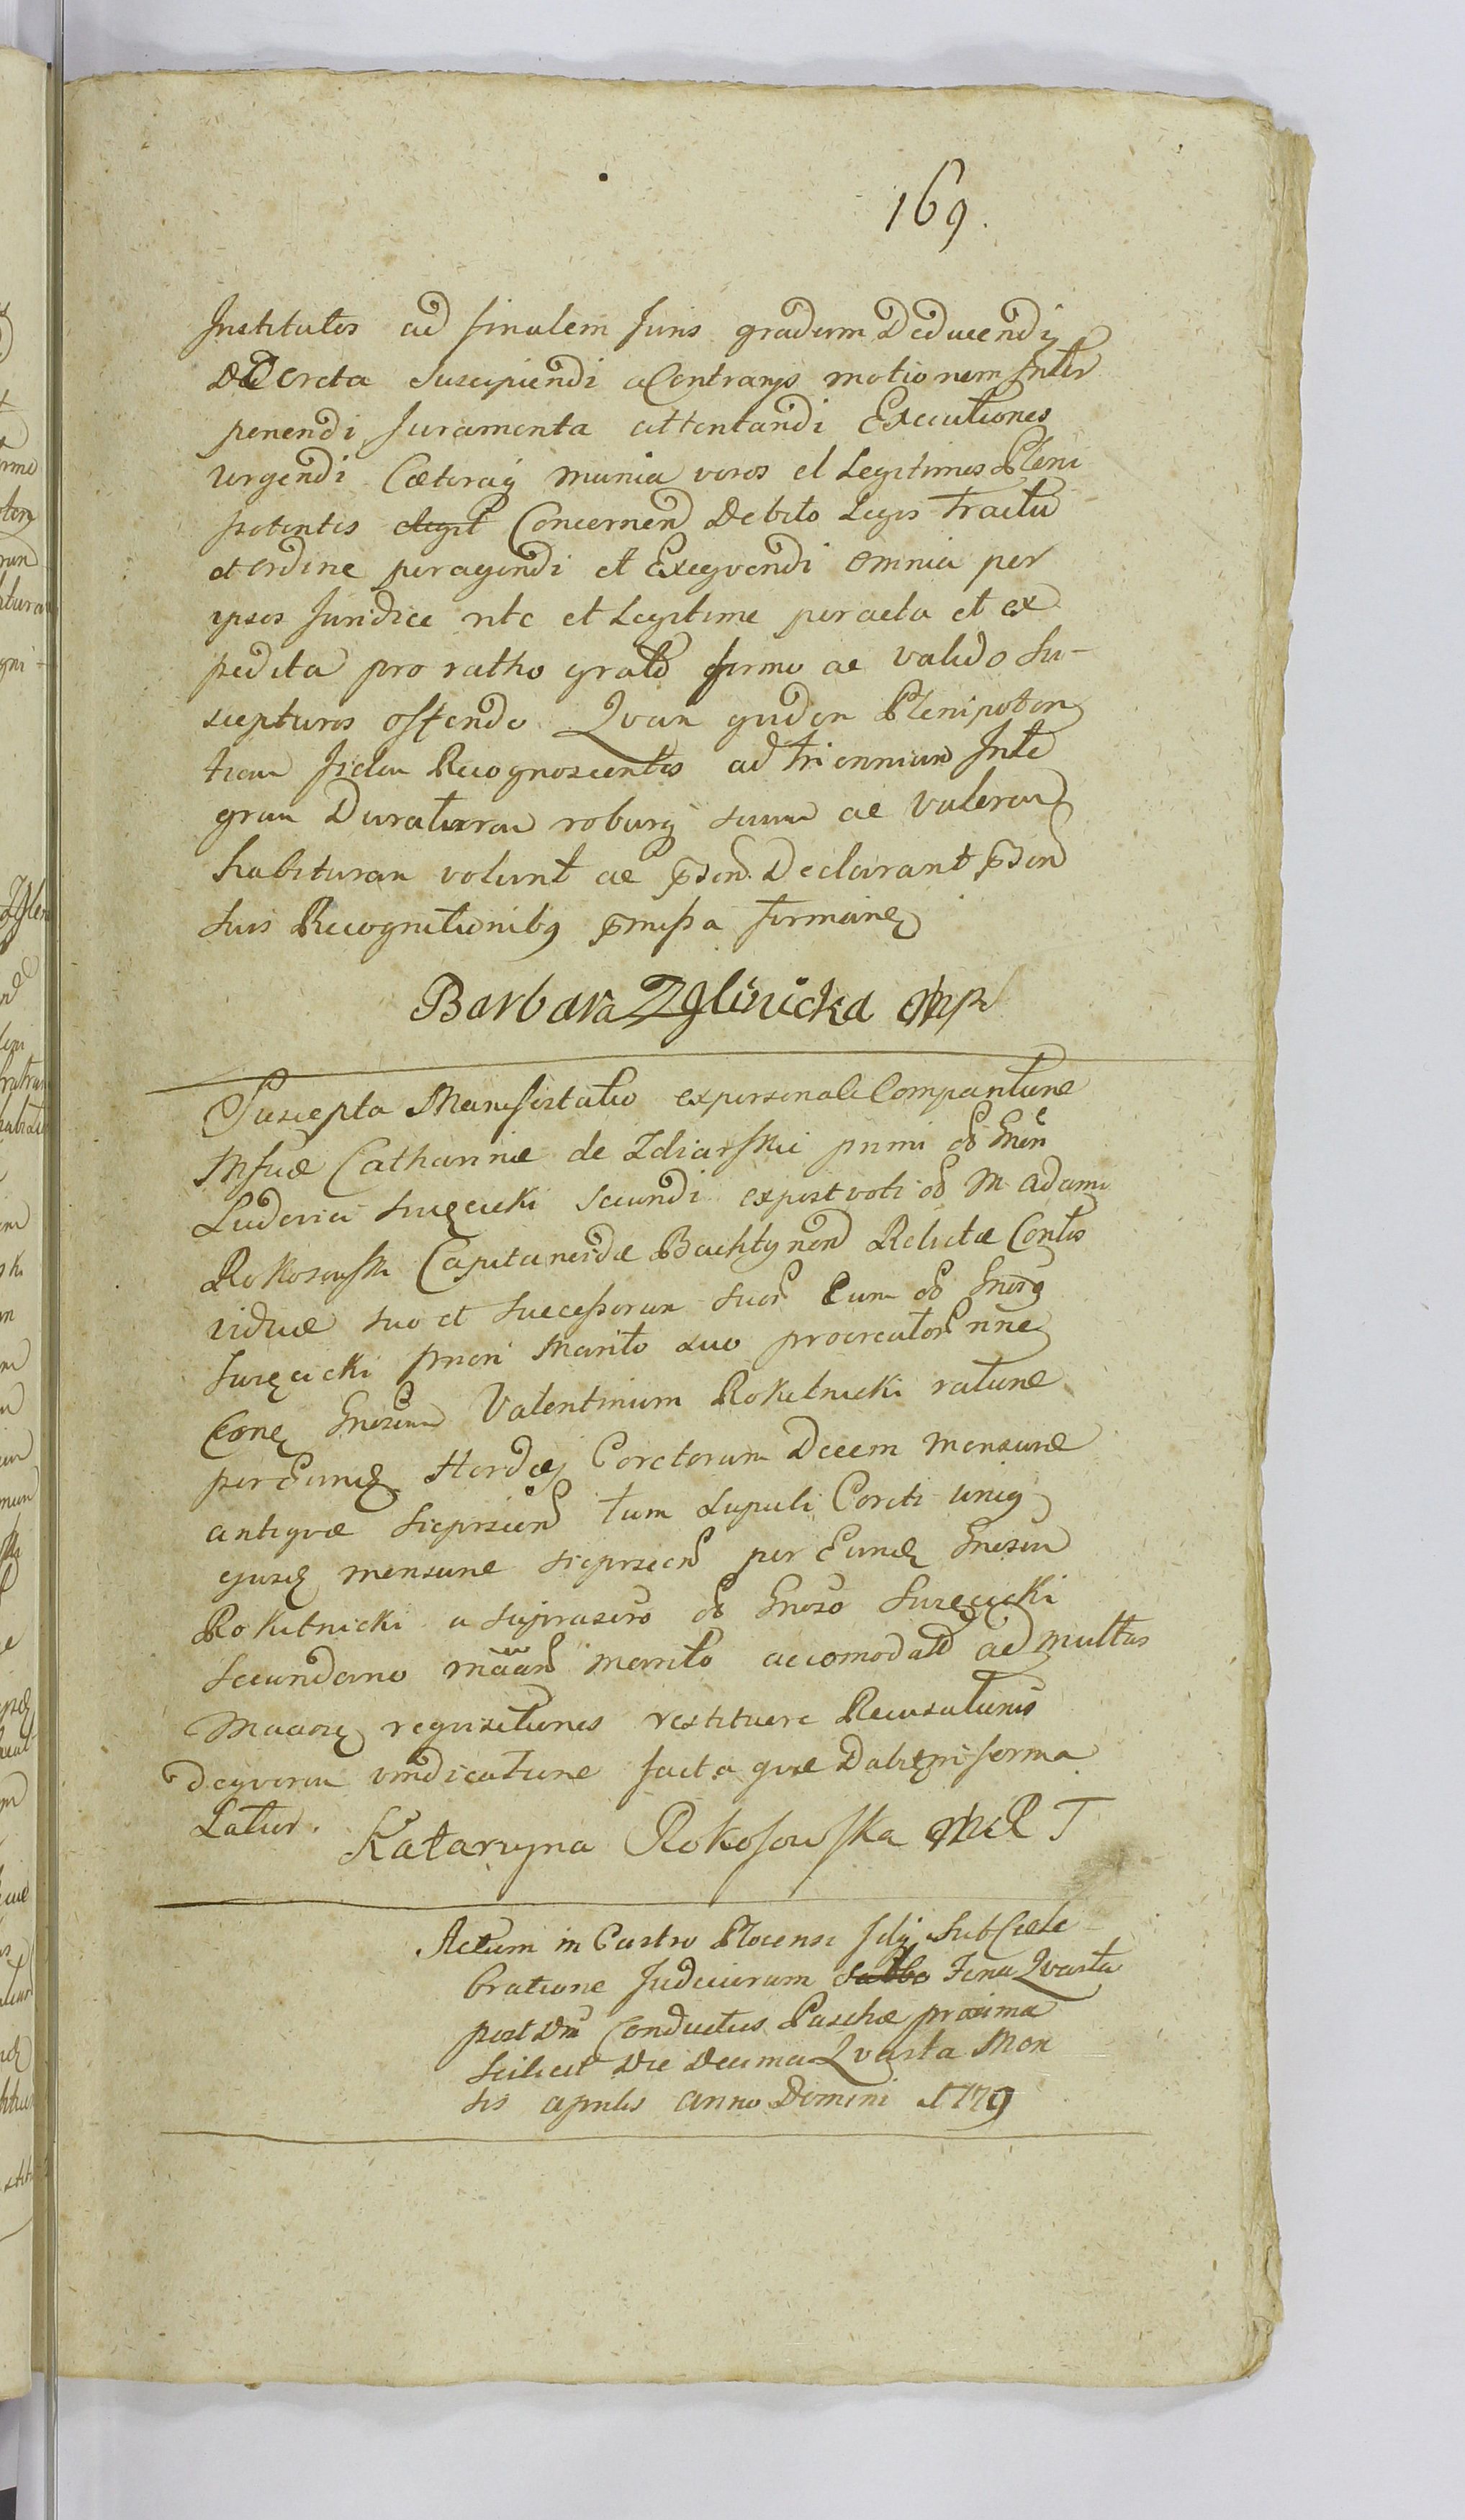 169.
Institutos ad finalem Juris gradum Deducendi
Decreta Suscipiendi a Contrarys motionem Inter
ponendi Juramenta attentandi Executiones
Urgendi Cæteraq munia veros et Legitimos Pleni
potentes elegit Concernen Debito Legis tractu
et ordine peragendi et Exeqvendi omnia per
ipsos Juridice rite et Legitime peracta et ex
pedita pro ratho grato firmo ac valido Su-
scepturos offendo Qvam quidem Plenipoten
tiam Iidem Recognoscentes ad triennium Inte
gram Duraturam roburq suum ac valorem
habituram volunt ac pnsen. Declarant pnsen
suis Recognitionibq pmissa firman
Barbara Zglinicka mp
Suscepta Manifestatio ex personali Comparitione
Msficæ Catharinæ de Zdiarskie primi olim Gnen
Ludovici Suręcicki secundi ex post voti olim M Adami
Rokosowski Capitaneidæ Bachtynen Relictæ Contis
viduæ suo et Successorum suor Cum olim Gnoso
Suręcicki priori Marito suo procreator nne
Cone Gnosum Valentinum Rokitnicki ratione
per Eund Hordej Coretorum Decem mensuræ
antiqvæ Sieprscien tum Lupuli Coreti unig
ejusd mensuræ sieprscen per Eund Gnosum
Rokitnicki a suprascro olim Gnoso Suręcicki
secundario maan Marito accomodato ad multas
Maaosq reqvisitiones restituere Recusationis
deqverum vindicatione facta qvæ Dabit in forma
Latior.
Kataryna Rokosowska mR T
Actum in Castro Plocensi feliq Sub Cele
bratione Judiciorum Sabbo Feria Qvarta
post Dm Conductus Paschæ proxima
scilicet Die Decima Qvarta Men
sis aprilis anno Domini 1779